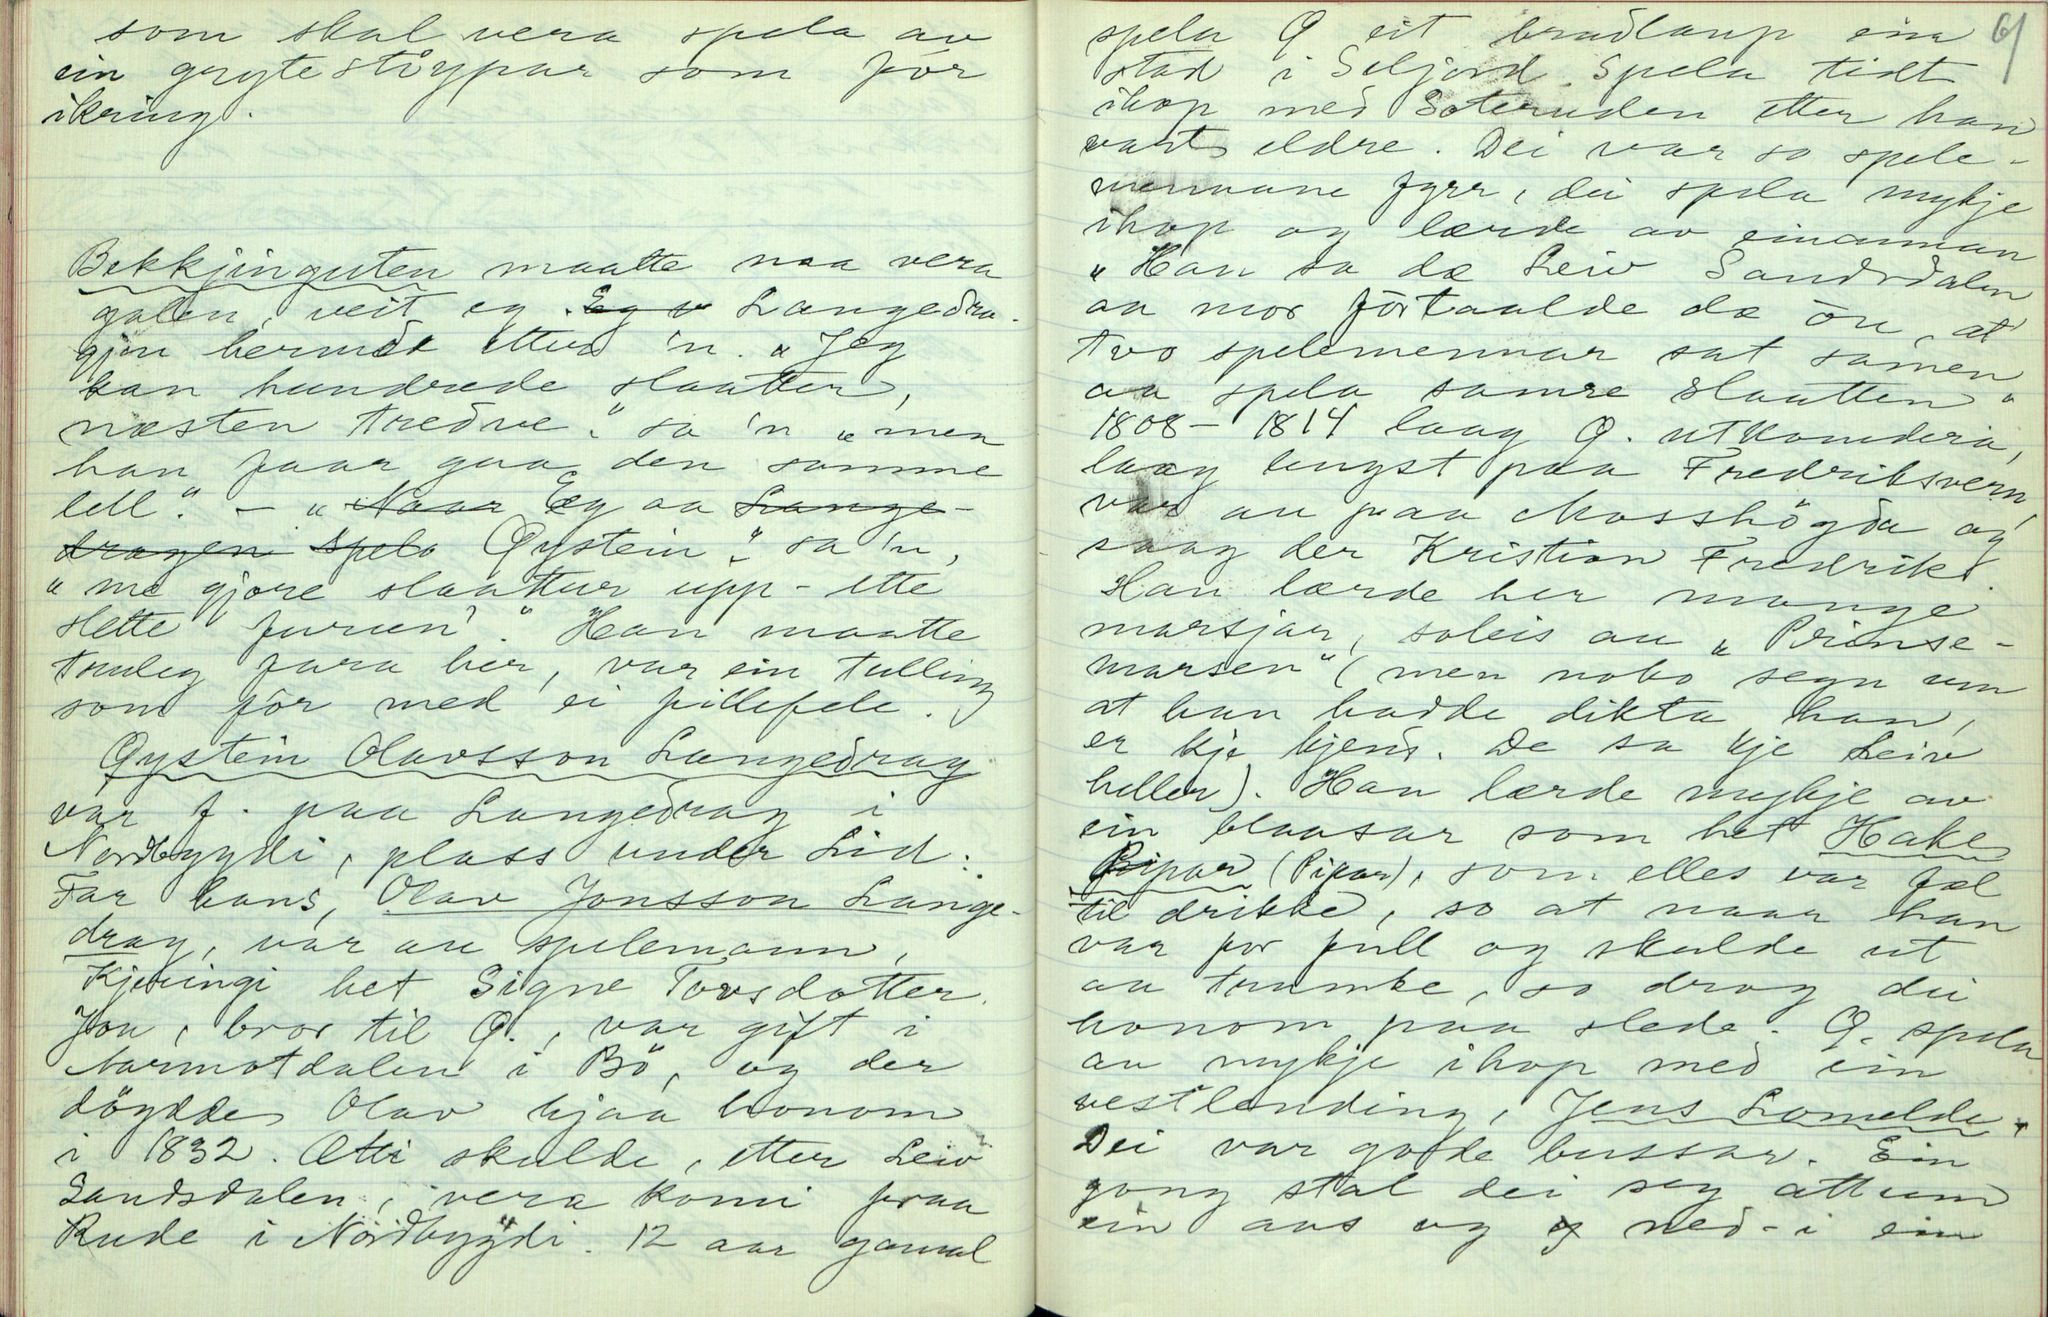 som skal vera spela av
ein grytestöypar som fór
ikring.
Bekkjinguten maatte naa vera
galen, veit eg. Eg v Langedra-
gjen hermde ettur 'n. "Jeg
kan hundrede slaatter,
næsten tredve." sa 'n "men
han faar gaa den samme
lell." - "Naar Eg aa Lange-
dragen spela Øystein", sa 'n,
"me gjøre slaattur upp-ette
slette furun'." Han maatte
tauleg fara her, var ein tulling
som fór med ei fillefele.
Øystein Olavsson Langedrag
var f. paa Langedrag i
Nordbygdi, plass under Lid.
Far hans, Olav Jonsson Lange-
drag, var au spelemann,
Kjeringi het Signe Torsdotter.
Jon, bror til Ø., var gift i
Narmotdalen i Bö, og der
döydde Olav hjaa honom
i 1832. Ætti skulde, etter Leiv
Sandsdalen, vera komi fraa
Rude i Nordbygdi. 12 aar gamal
61
spela Ø eit brudlaup ein
stad i Seljord. Spela tidt
ihop med Soterudden etter han
vart eldre. Dei var so spele-
mennane fyrr, dei spela mykje
ihop og lærde av einannan
"Han sa dæ Leiv Sandsdalen
aa mor förtaalde dæ öu, at
tvo spelemennar sat samen
aa spela samre slaatten"
1808-1814 laag Ø. utkomdera,
laag lengst paa Fredriksvern,
var au paa Mosshögda og
saag der Kristian Fredrik.
Han lærde her mange
marsjar, soleis au "Prinse-
marsen" (men noko segn um
at han hadde dikta han,
er kje kjend. De sa kje Leiv
heller). Han lærde mykje av
ein blaasar som het Hake
Pipar (Pipar), som elles var fæl
til drikke, so at naar han
var for full og skulde ut
aa trumbe, so drog dei
honom paa slede. Ø. spela
au mykje ihop med ein
vestlending, Jens Lomelde.
Dei var gode bussar. Ein
gong stal dei seg attum
ein aas og og ned-i ein